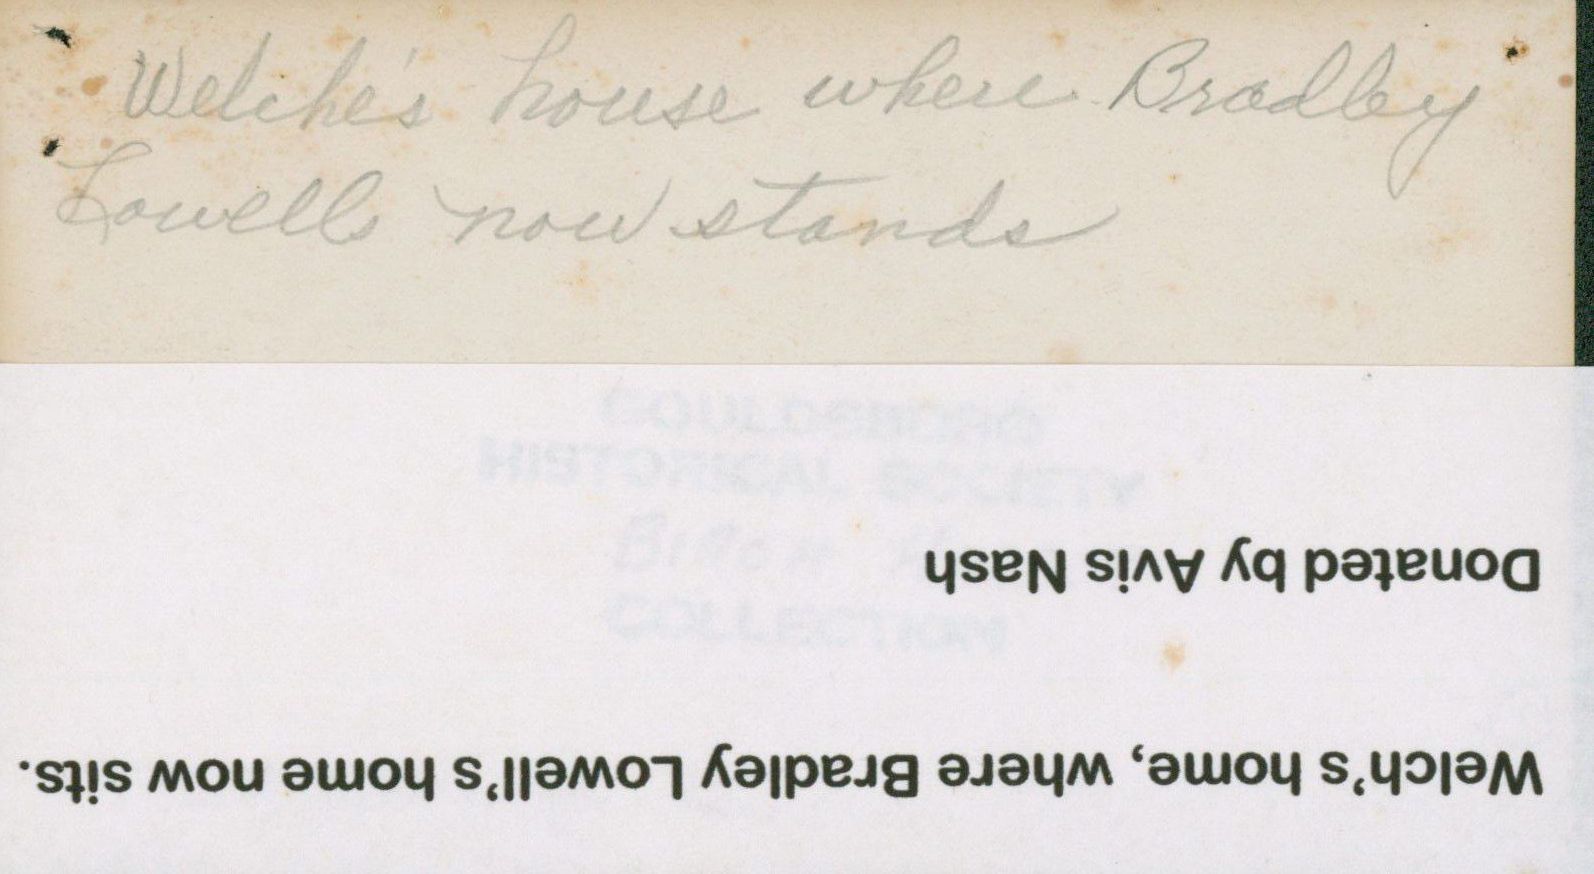 Welche's house where Bradley
Lowells now stands
GOULDSBORO
HISTORICAL SOCIETY
COLLECTION
Welch's home, where Bradley Lowell's home now sits.
Donated by Avis Nash